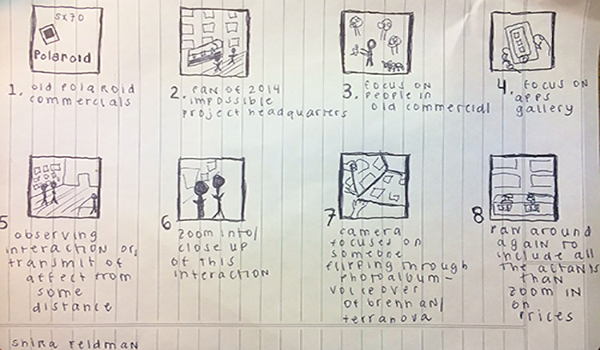 SX70
Polaroid
1. old polaroid
commercials
2. pan of 2014
impossible
project headquarters
3. focus on
people in
old commercial
4. focus on
apps
gallery
5
observing
interaction or
transmit of
affect from
some
distance
6
zoom into/
close up
of this
interaction
7
camera
focused on
someone
flipping through
photoalbum-
voiceover
of brennan/
terranova
8
pan around
again to
include all
the actants
than
zoom in
on
prices
shira feldman